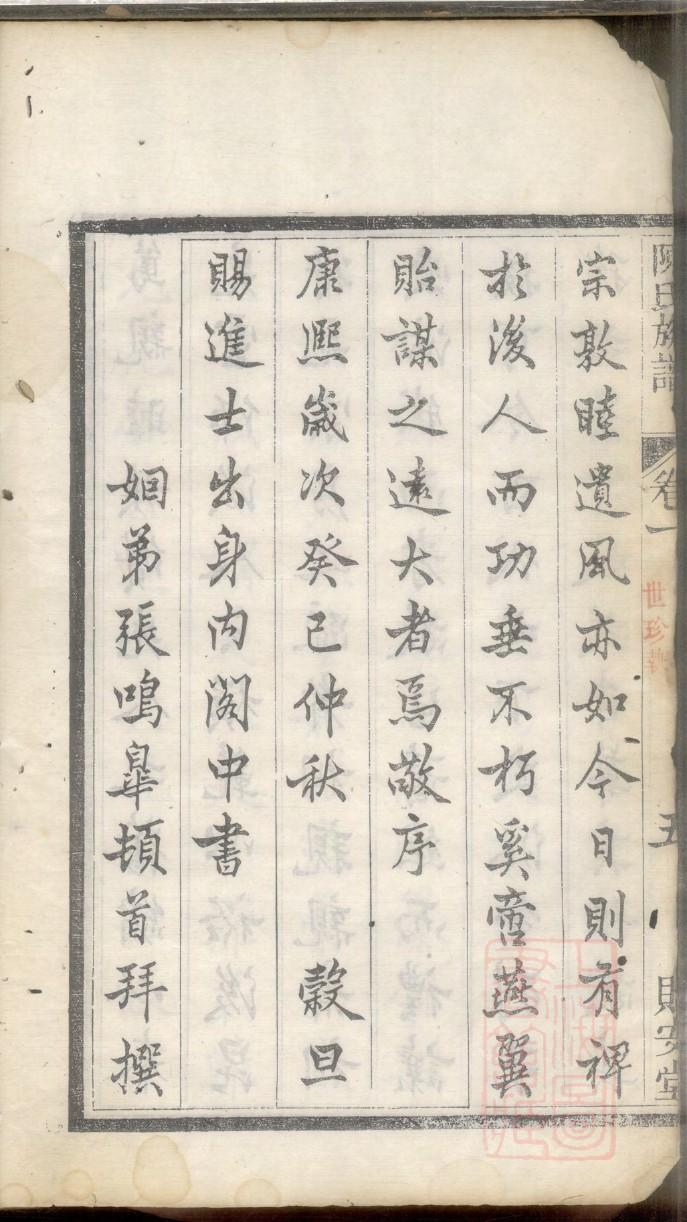 陳氏族譜 卷一 五
世珍
宗敦睦遺風亦如今日則有裨
於後人而功垂不朽奚啻燕翼
貽謀之遠大者焉敬序
康熙歲次癸巳仲秋 穀旦
賜進士出身內閣中書
姻弟張鳴臯頓首拜撰